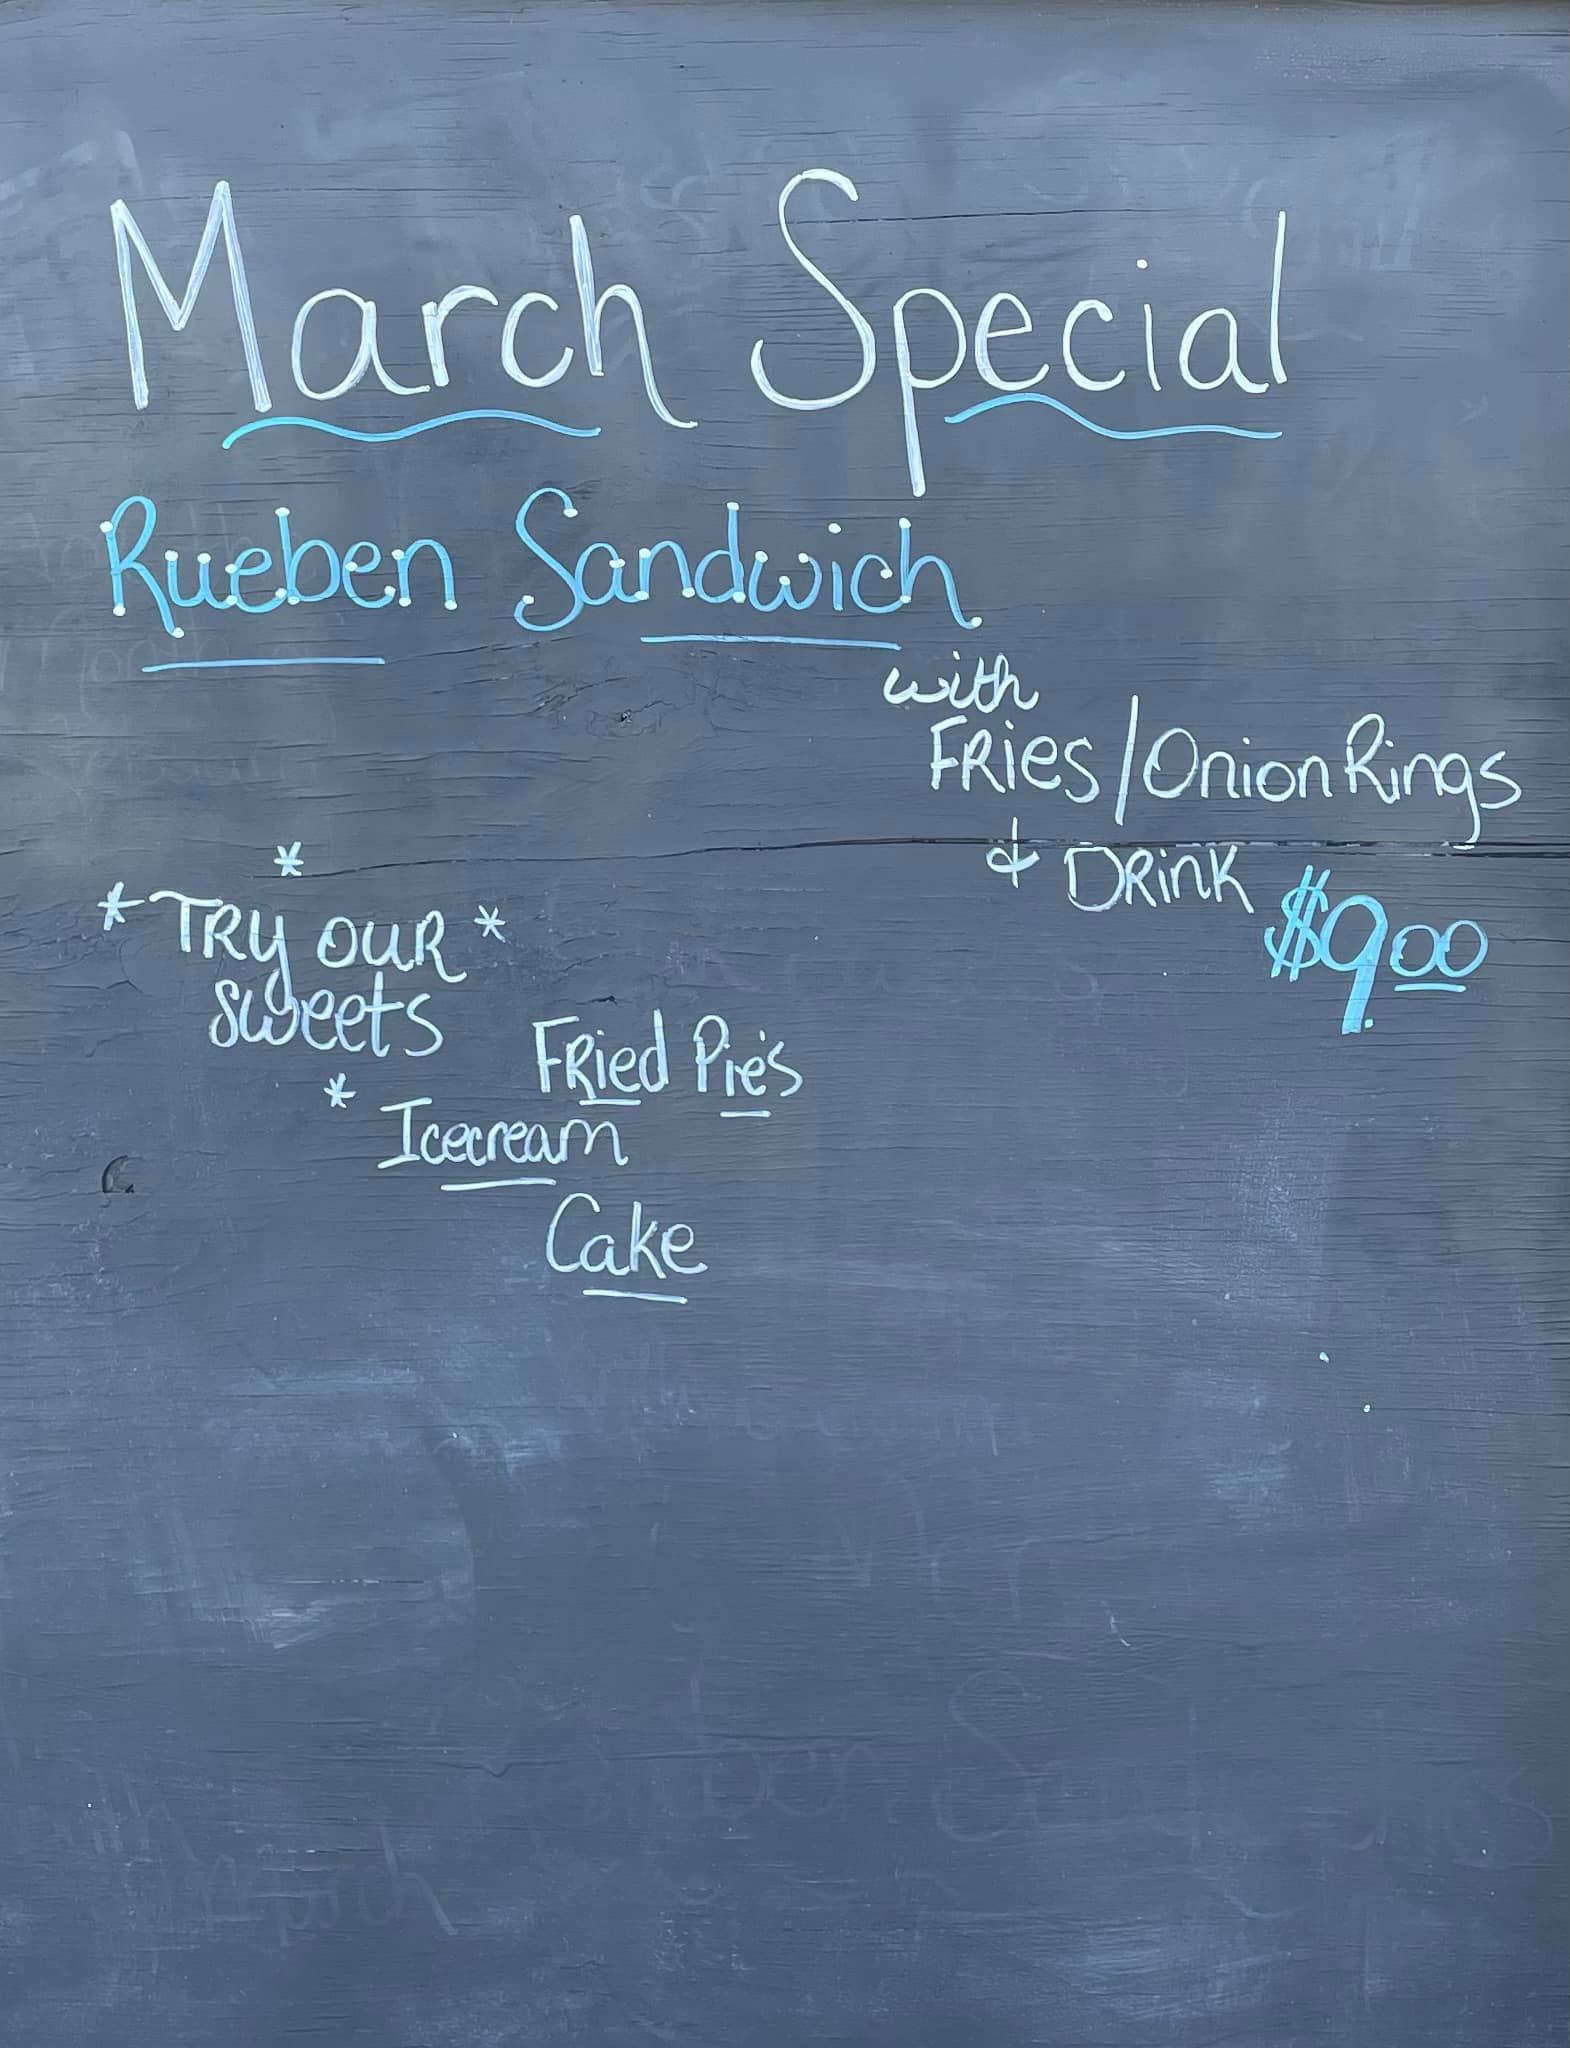 March Special
Rueben Sandwich
with
FRies/Onion Rings
& DRinK
$9.00
*
* TRy OUR *
sweets
FRied Pie's
* Icecream
Cake